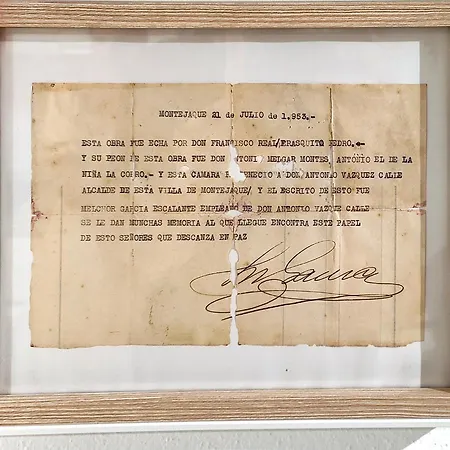 MONTEJAQUE 21 de JULIO de 1.953.-
ESTA OBRA FUE ECHA POR DON FRANCISCO REAL/FRASQUITO PEDRO.-
Y SU PEON DE ESTA OBRA FUE DON MELGAR MONTES, ANTONIO EL DE LA
NIÑA LA COBRO.- Y ESTA CAMARA A DON ANTONIO VAZQUEZ CALLE
ALCALDE DE ESTA VILLA DE MONTEJAQUE/ Y EL ESCRITO DE ESTO FUE
MELCHOR GARCIA ESCALANTE EMPLEADO DE DON ANTONIO VAZQUE CALLE
SE LE DAN MUNCHAS MEMORIA AL QUE LLEGUE ENCONTRA ESTE PAPEL
DE ESTO SEÑORES QUE DESCANZA EN PAZ